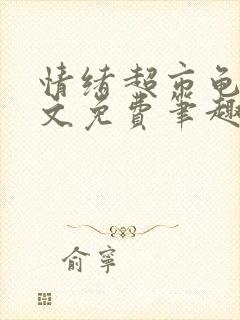 情绪超市龟
文免费笔趣
俞寧